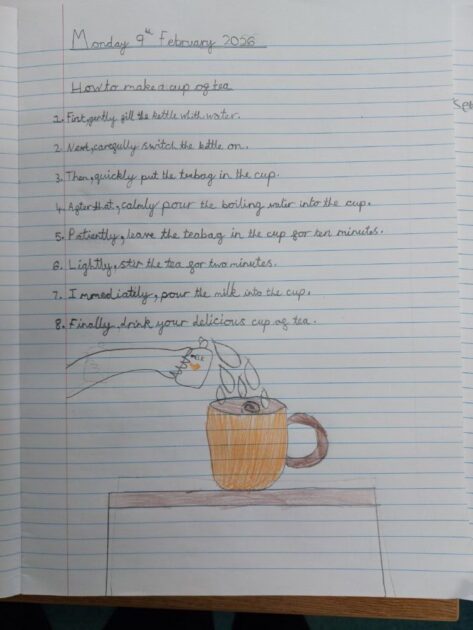 Monday 9th February 2026
How to make a cup of tea
1. First, gently fill the kettle with water.
2. Next, carefully switch the kettle on.
3. Then, quickly put the teabag in the cup.
4. After that, calmly pour the boiling water into the cup.
5. Patiently, leave the teabag in the cup for ten minutes.
6. Lightly, stir the tea for two minutes.
7. Immediately, pour the milk into the cup.
8. Finally, drink your delicious cup of tea.